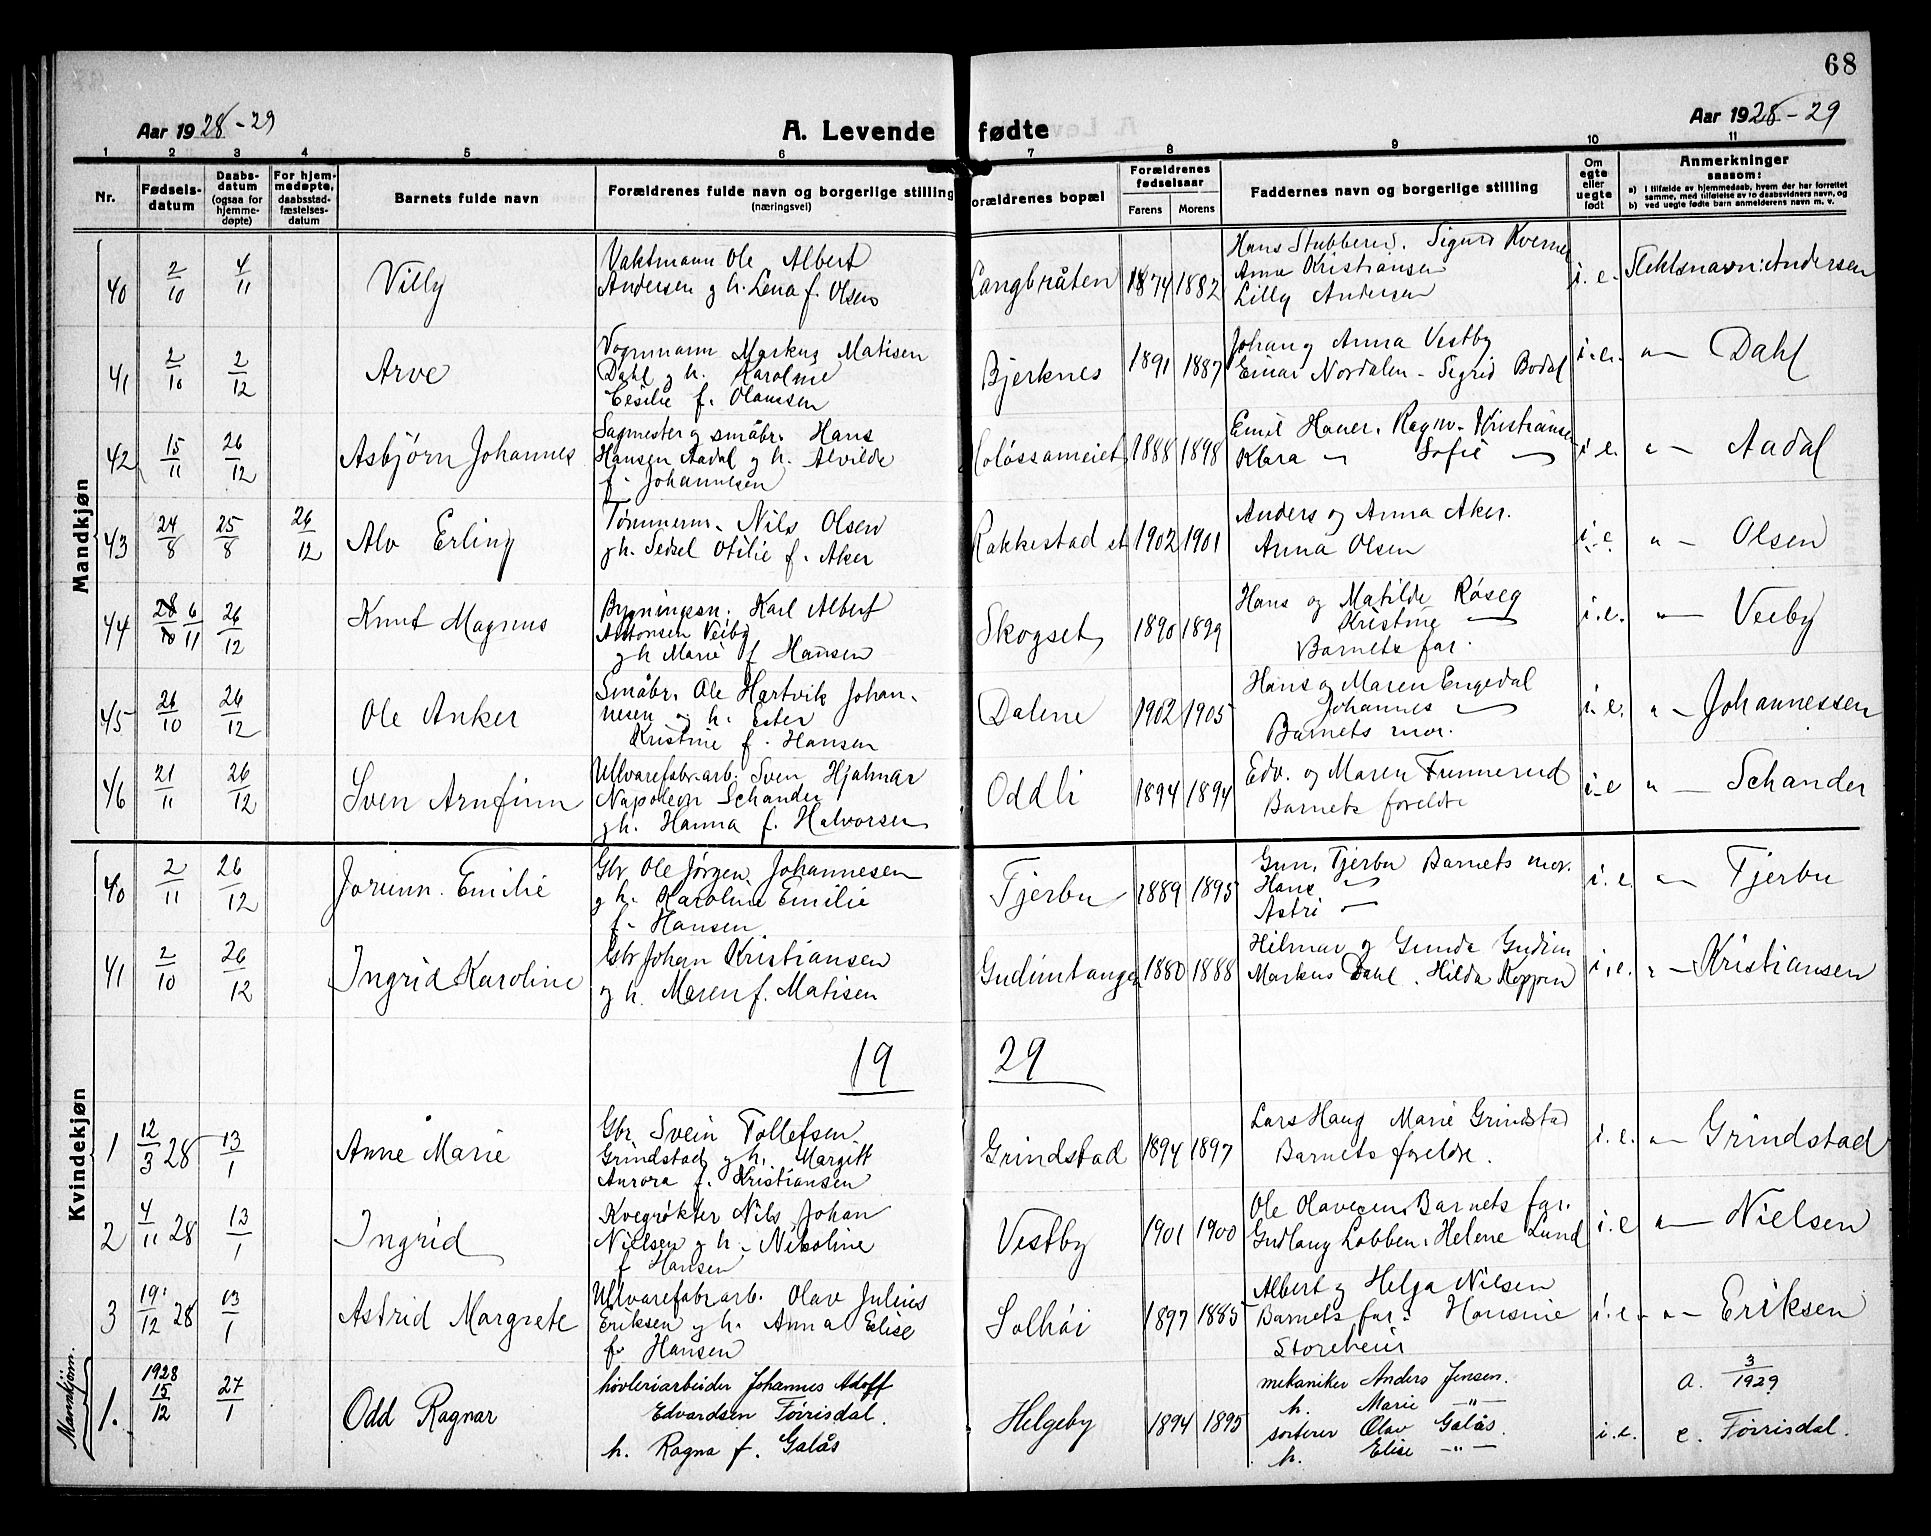 68
Aar 1928-29
A. Levende fødte
Aar 1928-29
1 2 3 4 5 6 7 8 9 10 11
Nr.
Fødsels-
datum
Daabs-
datum
(ogsaa for
hjemme-
døpte)
For hjem-
medøpte,
daabsstad-
fæstelses-
datum
Barnets fulde navn
Forældrenes fulde navn og borgerlige stilling
(næringsvei)
Forældrenes bopæl
Forældrenes
fødselsaar
Farens Morens
Faddernes navn og borgerlige stilling
Om
egte
eller
uegte
født
Anmerkninger
saasom:
a) I tilfælde av hjemmedaab, hvem der har forrettet
samme, med tilføielse av to daabsvidners navn, og
b) ved uegte fødte barn anmelderens navn m. v.
Mandkjøn
40 2/10 4/11 Villy
Vaktmann Ole Albert
Andersen og h. Lena f. Olsen
Langbråten 1874 1882
Hans Stubberud. Sigurd Kverne
Anna Kristiansen
Lilly Andersen
i. e. Slektsnavn: Andersen
41 2/10 2/12 Arve
Vognmann Markus Matisen
Dahl og h. Karoline
Cesilie f. Olausen
Bjerknes 1891 1887
Johan og Anna Vestby
Einar Nordalen - Sigrid Bodal
i. e. " — Dahl
42 15/11 26/12 Asbjørn Johannes
Sagmester og småbr. Hans
Hansen Aadal og h. Alvilde
f. Johannesen
Coløssameiet 1888 1898
Emil Hauer. Ragnv. Kristiansen
Klara — Sofie —
i. e. " — Aadal
43 24/8 25/8 26/12 Alv Erling
Tømmerm. Nils Olsen
og h. Sedsel Otilie f. Aker
Rakkestad st 1902 1901
Anders og Anna Aker.
Anna Olsen
i. e. " — Olsen
44 28/10 6/11 26/12 Knut Magnus
Bygningssn. Karl Albert
Antonsen Veiby
og h Marie f Hansen
Skogset 1890 1899
Hans og Matilde Røseg
Kristine —
Barnets far.
i. e. " — Veiby
45 26/10 26/12 Ole Anker
Småbr. Ole Hartvik Johan-
nesen og h. Ester
Kristine f. Hansen
Dalene 1902 1905
Hans og Maren Engedal
Johannes —
Barnets mor.
i. e. " — Johannessen
46 21/11 26/12 Sven Arnfinn
Ullvarefabr.arb. Sven Hjalmar
Napoleon Schander
og h. Hanna f. Halvorsen
Oddli 1894 1894
Edv. og Maren Funnerud
Barnets foreldre
i-e " — Schander
Kvindekjøn
40 2/11 26/12 Jorunn. Emilie
Gbr. Ole Jørgen Johannesen
og h. Karoline Emilie
f. Hansen
Tjerbu 1889 1895
Gun. Tjerbu Barnets mor.
Hans —
Astri —
i. e. " — Tjerbu
41 2/10 26/12 Ingrid Karoline
Gbr Johan Kristiansen
og h. Maren f. Matisen
Gudimtangen 1880 1888
Hilmar og Gunda Gudim
Markus Dahl. Hilda Koppen
i. e. " — Kristiansen
19 29
1 12/3 28 13/1 Anne Marie
Gbr. Svein Tollefsen
Grindstad og h. Margitt
Aurora f. Kristiansen
Grindstad 1894 1897
Lars Haug Marie Grindstad
Barnets foreldre.
i. e. " — Grindstad
2 4/11 28 13/1 Ingrid
Kvegrøkter Nils Johan
Nielsen og h. Nikoline
f Hansen
Vestby 1901 1900
Ole Olavesen. Barnets far.
Gudlaug Lobben. Helene Lund
i. e " — Nielsen
3 19/12 28 13/1 Astrid Margrete
Ullvarefabr.arb. Olav Julius
Eriksen og h. Anna Elise
f. Hansen
Solhöi 1897 1885
Albert og Helga Nilsen
Barnets far. Hansine
Storeheier
i. e. " — Eriksen
Mannkjönn.
1. 1928 15/12 27/1 Odd Ragnar
høvleriarbeider Johannes Adolf
Edvardsen Töirisdal.
h. Ragna f. Galås
Helgeby 1894 1895
mekaniker Anders Jensen.
h. Marie —"—
sorterer Olav Galås.
h. Elise —"—
i. e. a. 3/1929
e. Töirisdal.